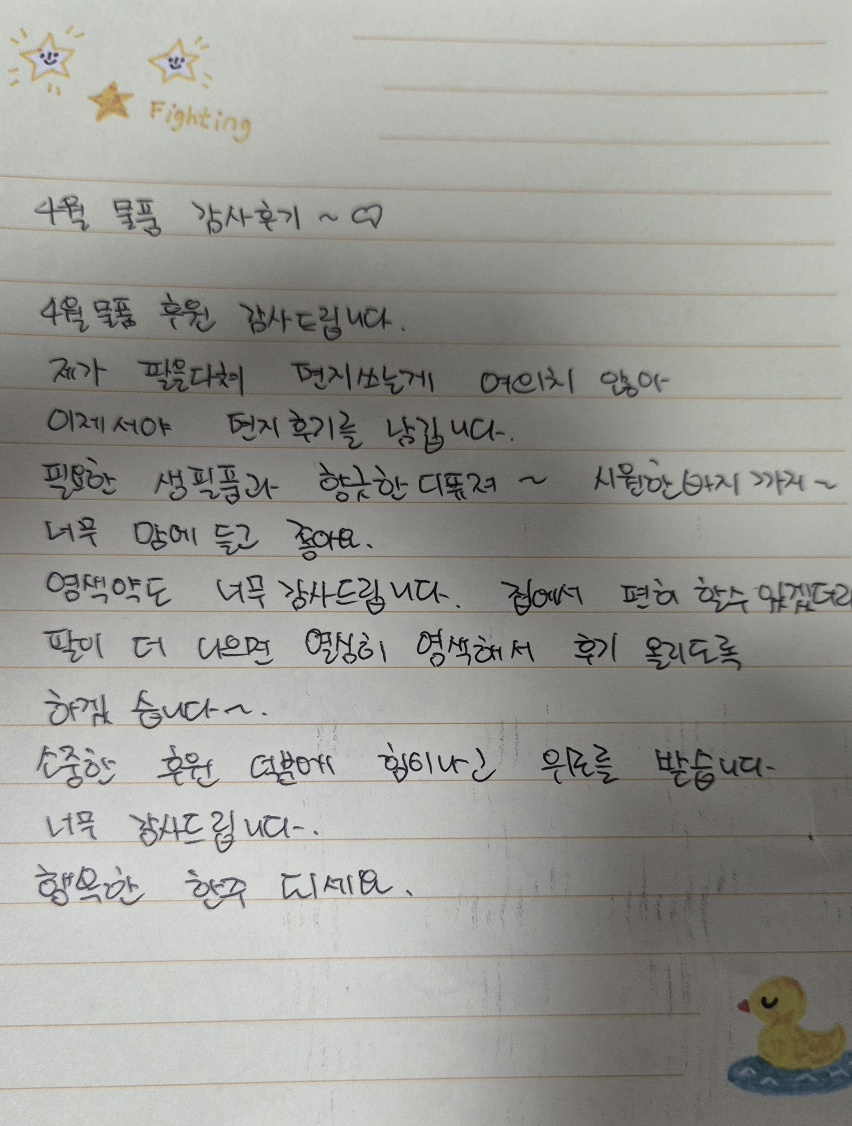 Fighting
4월 물품 감사후기 ~ ♡
4월 물품 후원 감사드립니다.
제가 팔을다쳐 편지쓰는게 여의치 않아
이제서야 편지후기를 남깁니다.
필요한 생필품과 향긋한 디퓨져 ~ 시원한바지 까지~
너무 맘에 들고 좋아요.
염색약도 너무 감사드립니다. 집에서 편히 할수 있겠더라
팔이 더 나으면 열심히 염색해서 후기 올리도록
하겠 습니다~.
소중한 후원 덕분에 힘이나고 위로를 받습니다.
너무 감사드립니다.
행복한 한주 되세요.